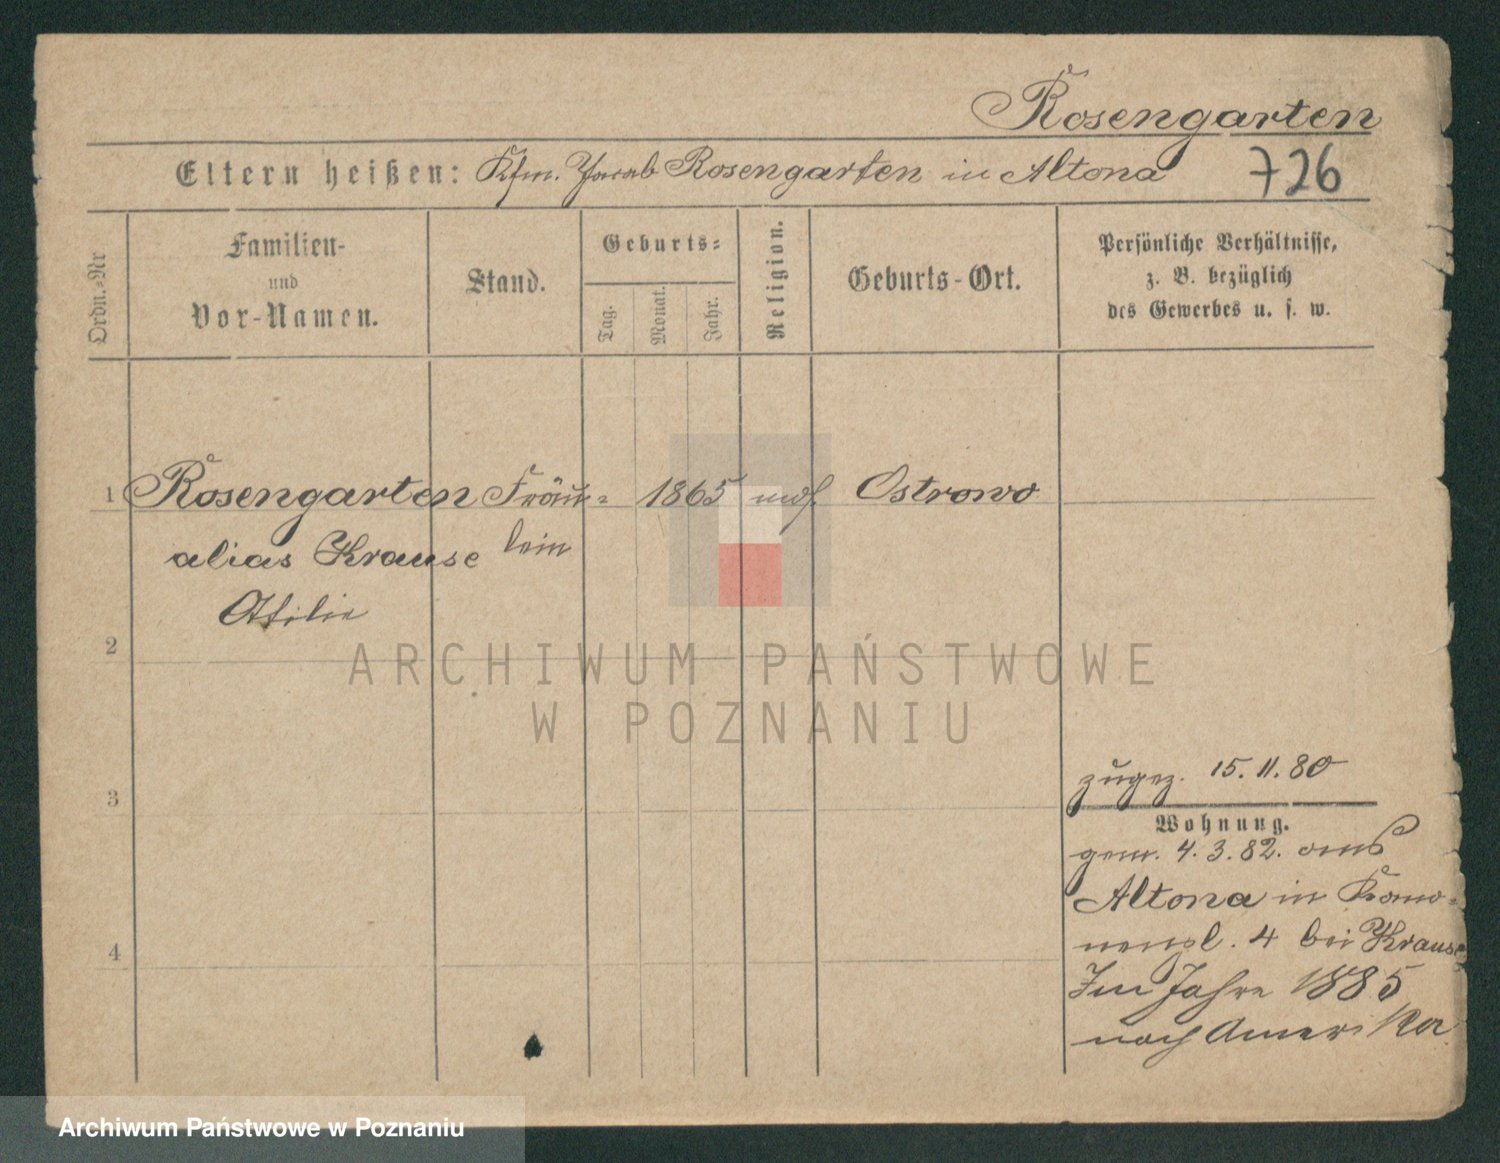 Rosengarten
Eltern heißen: Kfm. Jacob Rosengarten in Altona
726
Ordn.=Nr
Familien-
und
Vor-Namen.
Stand.
Geburts=
Tag.
Monat.
Jahr.
Religion.
Geburts-Ort.
Persönliche Verhältnisse,
z. B. bezüglich
des Gewerbes u. s. w.
1 Rosengarten Fräu= 1865 mos. Ostrowo
alias Krause lein
Otilie
2
ARCHIWUM PAŃSTWOWE
W POZNANIU
zugez. 15.11.80
3
Wohnung.
gem. 4.3.82. aus
Altona in
4 bei Krause
4
Im Jahre 1885
nach Amerika
Archiwum Państwowe w Poznaniu